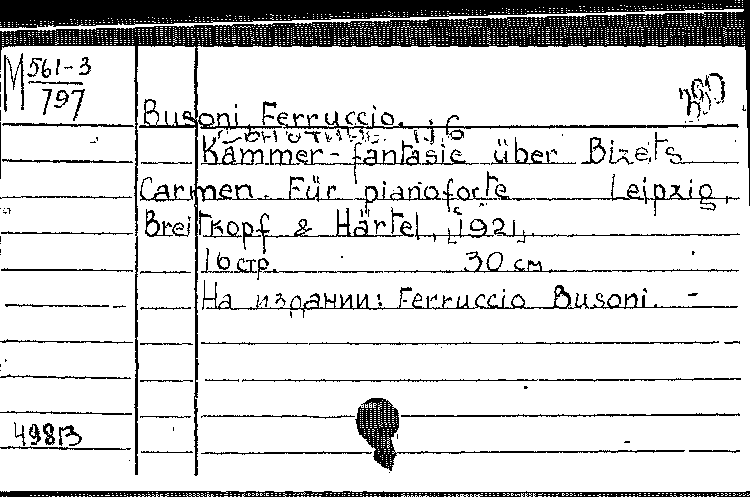 M 561-3
797
Busoni, Ferruccio.
Kammer-fantasie über Bizets
Carmen. Für pianoforte Leipzig,
Breitkopf & Härtel, [1921].
16 стр. 30 см
На издании: Ferruccio Busoni. -